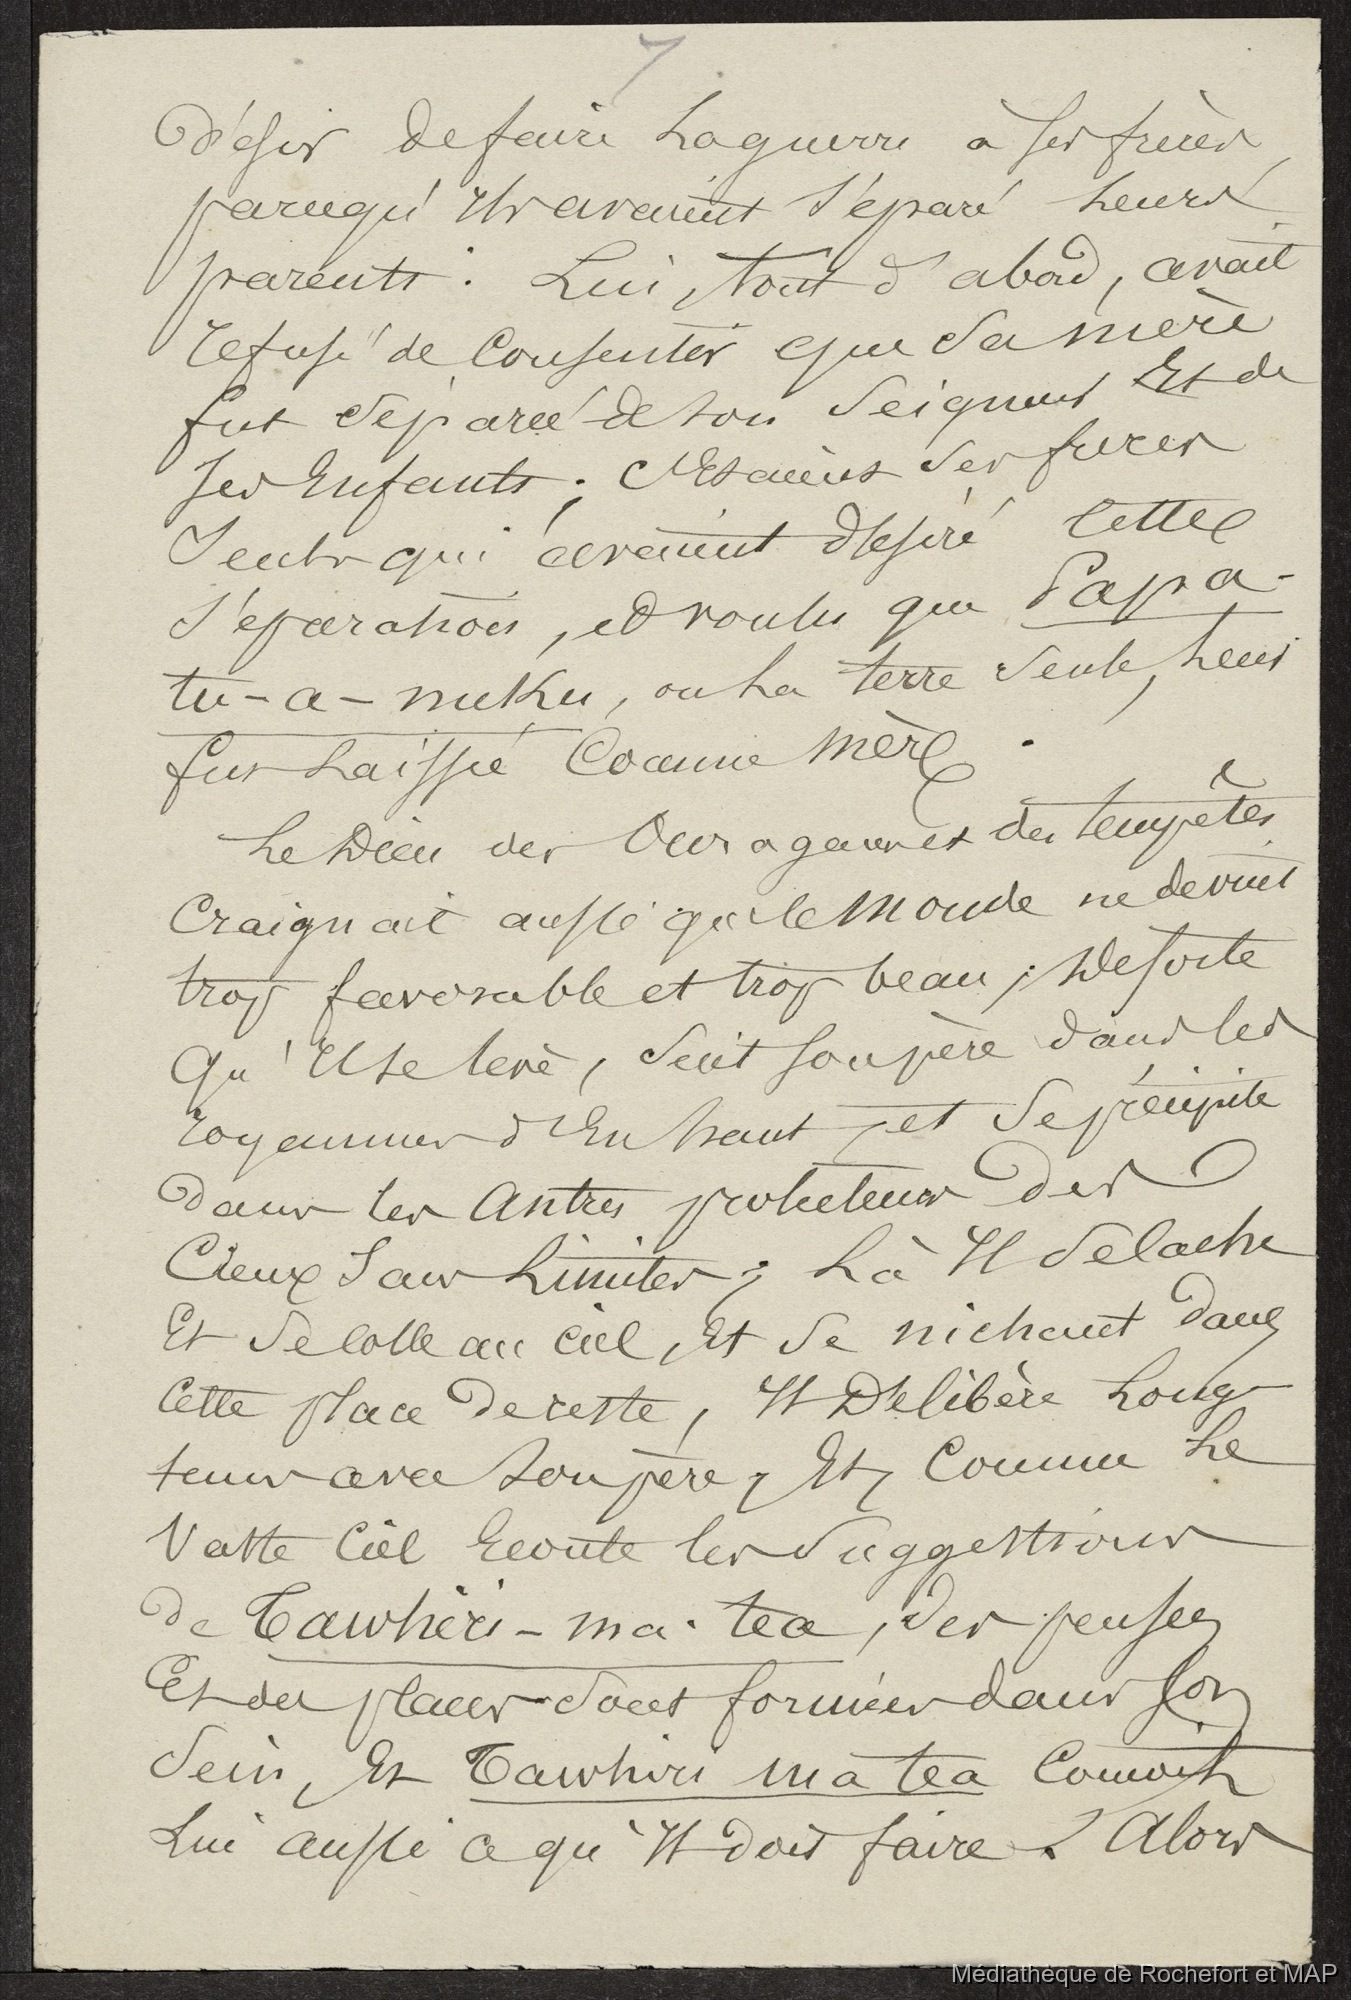 7
désir de faire la guerre à ses frères,
parcequ'ils avaient séparé leurs
parents. Lui, tout d'abord, avait
refusé de consentir que sa mère
fut séparée de son Seigneur et de
ses Enfants; c'étaient ses frères
seuls qui avaient désiré cette
séparation, et voulu que Papa-
tu-a-nuku, ou la terre seule, leur
fut laissée comme mère.
Le Dieu des Ouragans et des tempêtes
craignait aussi que le monde ne devint
trop favorable et trop beau; de sorte
qu'il se lève, suit son père dans les
royaumes d'en haut, et se précipite
dans les antres protecteurs des
Cieux sans limites; là il se lache
et se colle au ciel, et se nichant dans
cette place de reste, il délibère long-
temps avec son père, et, comme le
Vaste Ciel écoute les suggestions
de Tawhiri-ma-tea, des pensées
et des places sont formées dans son
sein, et Tawhiri ma tea connoit
lui aussi ce qu'il doit faire. Alors
Médiathèque de Rochefort et MAP